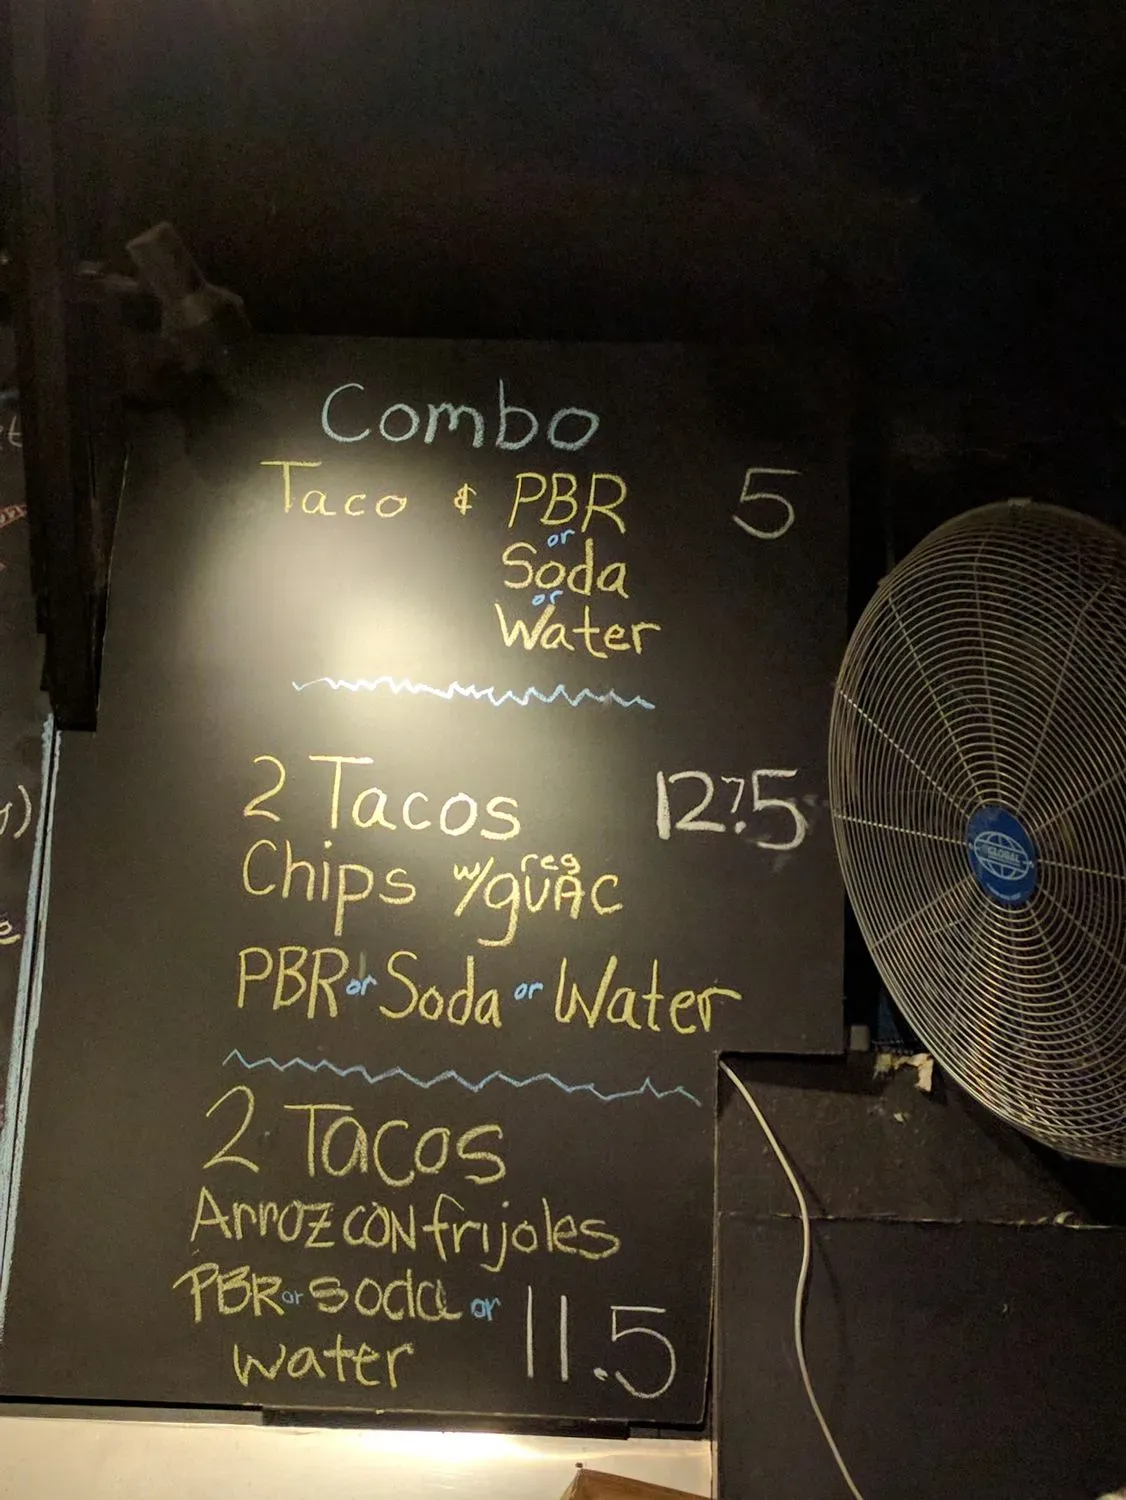 Combo
Taco & PBR 5
or
Soda
or
Water
2 Tacos 12.75
Chips w/ reg guac
PBR or Soda or Water
2 Tacos
Arroz con frijoles
PBR or soda or
water 11.5
GLOBAL